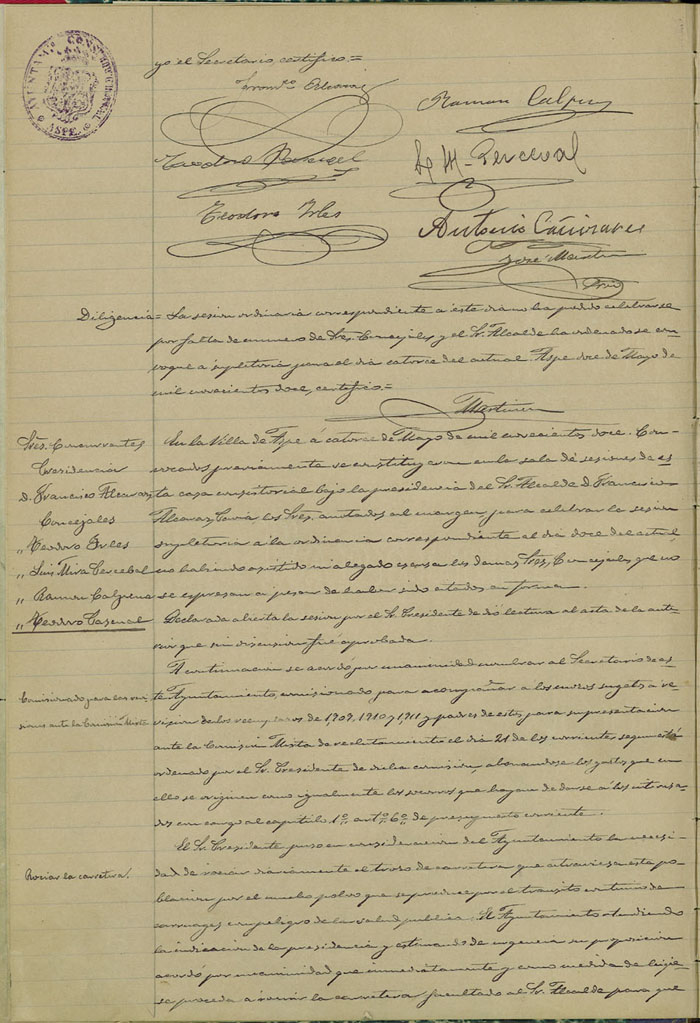 AYUNTAMTO CONSTITUCIONAL
ASPE
yo el Secretario certifico.=
Ramon Calpena
Teodoro Pascual
L M. Perceval
Teodoro Irles
Antonio Cañizares
José Martin
Diligencia= La sesion ordinaria correspondiente a este dia no ha podido celebrarse
por falta de numero de Sres. Concejales y el Sr. Alcalde ha ordenado se con-
voque a supletoria para el dia catorce del actual Aspe doce de Mayo de
mil novecientos doce, certifico.=
Martinez
Sres. Concurrentes
Presidencia
D. Francisco Alcaraz
Concejales
„ Teodoro Irles
„ Luis Mira Percebal
„ Ramon Calpena
„ Teodoro Pascual
En la Villa de Aspe á catorce de Mayo de mil novecientos doce. Con-
vocados previamente se constituyeron en la sala de sesiones de es-
ta casa consistorial bajo la presidencia del Sr. Alcalde D. Francisco
Alcaraz Cavia los Sres. anotados al margen para celebrar la sesion
supletoria a la ordinaria correspondiente al dia doce del actual
no habiendo asistido ni alegado escusa los demas Sres. Concejales que no
se espresan a pesar de haber sido citados en forma.
Declarada abierta la sesion por el Sr. Presidente se dio lectura al acta de la ante-
rior que sin discusion fué aprobada.
Comisionado para las revi-
siones ante la Comisión Mixta
A continuacion se acordo por unanimidad nombrar al Secretario de es-
te Ayuntamiento, comisionado, para acompañar a los mozos sugetos a re-
vision de los reemplazos de 1,909, 1,910 y 1,911 y padres de estos, para su presentacion
ante la Comision Mixta de reclutamiento el dia 21 de los corrientes segun está
ordenado por el Sr. Presidente de dicha comision, abonandose los gastos que en
ello se originen como igualmente los socorros que hayan de darse á los interesa-
dos con cargo al capitulo 1º artº 6º de presupuesto corriente.
Rociar la carretera.
El Sr. Presidente puso en consideracion del Ayuntamiento la necesi-
dad de rociar diariamente el trozo de carretera que atraviesa esta po-
blacion por el mucho polvo que se produce por el transito continuo de
carruages con peligro de la salud publica. El Ayuntamiento atendiendo
la indicacion de la presidencia y estimando de urgencia su proposicion
acordo por unanimidad que inmediatamente y como medida de higie-
ne se proceda a rociar la carretera facultando al Sr. Alcalde para que